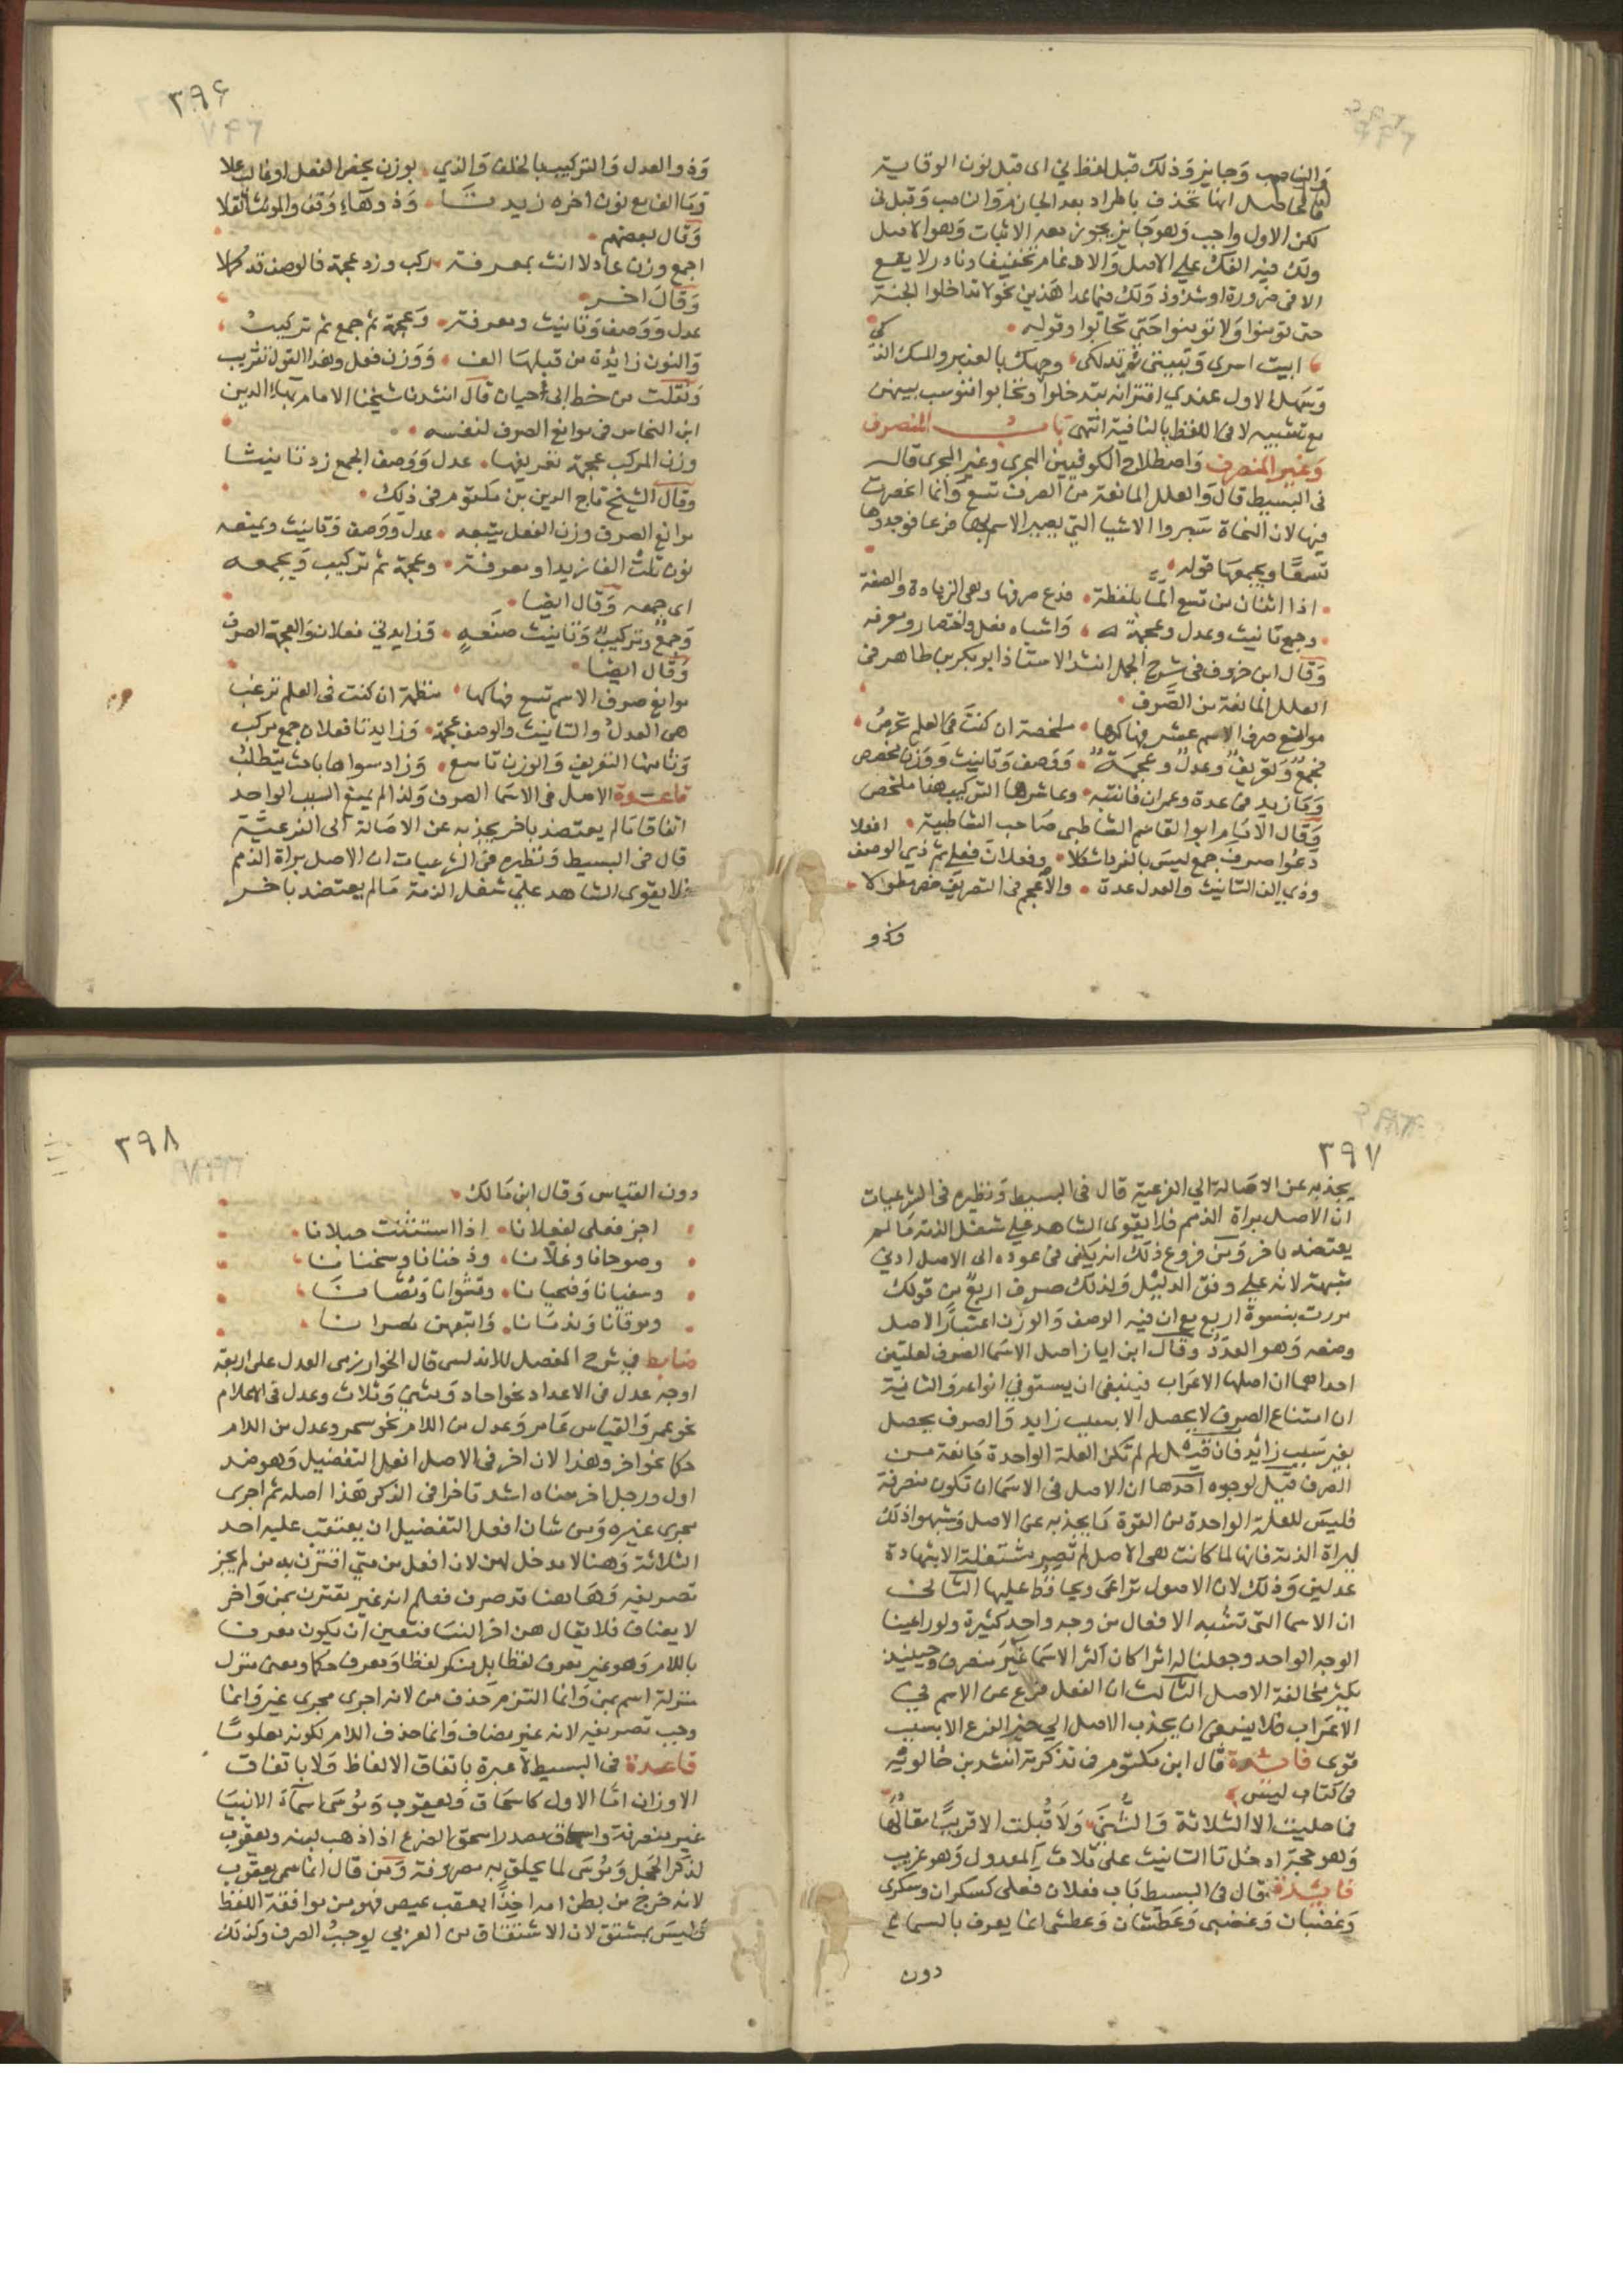 والناصب وجايز وذلك قبل لفظ ني اى قبل نون الوقاية
فالحاصل انها تحذف باطراد بعد الجازم والناصب وقبل ني
لكن الاول واجب وهو جايز يجوز معه الاثبات وهو الاصل
ولك فيه الفك على الاصل والادغام تخفيفا ونادر لا يقع
الا فى ضرورة او شذوذ وذلك فيما عدا هذين نحو لا تدخلوا الجنة
حتى تؤمنوا ولا تؤمنوا حتى تحابوا وقوله
ابيت اسرى وتبيتى تدلكى وجهك بالعنبر والمسك الذكى
ويسهل الاول عندى اقترانه بتدخلوا وتحابوا فنوسب بينهن
مع تشبيه لا فى اللفظ بالناهية انتهى باب المنصرف
وغير المنصرف واصطلاح الكوفيين المجرى وغير المجرى قال
فى البسيط قال والعلل المانعة من الصرف تسع وانما انحصرت
فيها لان النحاة سبروا الاشيا التى يصير الاسم بها فرعا فوجدوها
تسعا ويجمعها قوله
اذا اثنان من تسع الما بلفظة فدع صرفها وهى الزيادة والصفة
وجمع تانيث وعدل وعجمة واشباه فعل واختصار ومعرفة
وقال ابن خروف فى شرح الجمل انشد الاستاذ ابو بكر بن طاهر فى
العلل المانعة من الصرف
موانع صرف الاسم عشر فهاكها ملخصة ان كنت فى العلم تحرص
فجمع وتعريف وعدل وعجمة ووصف وتانيث ووزن مخصص
وما زيد فى عدة وعمران فانتبه وعاشرها التركيب هذا ملخص
وقال الامام ابو القاسم الشاطبى صاحب الشاطبية
دعوا صرف جمع ليس بالفرد اشكلا وفعلان فعلى ثم ذى الوصف افعلا
وذى الف التانيث والعدل عدة والاعجم فى التعريف خص مطولا
وذو
٣٩٦
وذو العدل والتركيب بالخلف والذي بوزن يخص الفعل او غالب علا
وما الف مع نون اخره زيدتا وذو هاء وقف والمؤنث اثقلا
وقال بعضهم
اجمع وزن عادلا انث بمعرفة ركب وزد عجمة فالوصف قد كملا
وقال اخر
عدل ووصف وتانيث ومعرفة وعجمة ثم جمع ثم تركيب
والنون زائدة من قبلها الف ووزن فعل وهذا القول تقريب
ونقلت من خط ابى حيان قال انشدنا شيخنا الامام بهاء الدين
ابن النحاس فى موانع الصرف لنفسه
وزن المركب عجمة تعريفها عدل ووصف الجمع زد تانيثا
وقال الشيخ تاج الدين بن مكتوم فى ذلك
موانع الصرف وزن الفعل يتبعه عدل ووصف وتانيث ويمنعه
نون تلت الفا زيدا ومعرفة وعجمة ثم تركيب ويجمعه
اى جمعه وقال ايضا
وجمع وتركيب وتانيث صنعة وزايدتى فعلان والعجمة الصرف
وقال ايضا
موانع صرف الاسم تسع فهاكها منظمة ان كنت فى العلم ترغب
هى العدل والتانيث والوصف عجمة وزايدتا فعلان جمع مركب
وثامنها التعريف والوزن تاسع وزاد سواها باحث يتطلب
قاعدة الاصل فى الاسما الصرف ولذا لم يمنع السبب الواحد
اتفاقا مالم يعتضد باخر يجذبه عن الاصالة الى الفرعية
قال فى البسيط ونظيره فى الشرعيات ان الاصل براة الذمم
فلا يقوى الشاهد على شغل الذمة مالم يعتضد باخر
٣٩٧
يجذبه عن الاصالة الي الفرعية قال فى البسيط ونظيره فى الشرعيات
ان الاصل براة الذمم فلا يقوى الشاهد على شغل الذمة مالم
يعتضد باخر ومن فروع ذلك انه يكفى فى عوده الى الاصل ادنى
شبهة لانه على وفق الدليل ولذلك صرف اربع من قولك
مررت بنسوة اربع مع ان فيه الوصف والوزن اعتبارا لاصل
وضعه وهو العدد وقال ابن اياز اصل الاسما الصرف لعلتين
احداهما ان اصلها الاعراب فينبغى ان يستوفى انواعه والثانية
ان امتناع الصرف لا يحصل الا بسبب زايد والصرف يحصل
بغير سبب زائد فان قيل لم لم تكن العلة الواحدة مانعة من
الصرف قيل لوجوه احدها ان الاصل فى الاسما ان تكون منصرفة
فليس للعلة الواحدة من القوة ما يجذبه عن الاصل وشبهوا ذلك
ببراة الذمة فانها لما كانت هى الاصل لم تصير مشتغلة الا بشهادة
عدلين وذلك لان الاصول تراعى ويحافظ عليها الثانى
ان الاسما التى تشبه الافعال من وجه واحد كثيرة ولو راعينا
الوجه الواحد وجعلنا له اثرا كان اكثر الاسما غير منصرف وحينئذ
يكثر مخالفة الاصل الثالث ان الفعل فرع عن الاسم فى
الاعراب فلا ينبغى ان يجذب الاصل الي حيز الفرع الا بسبب
قوى فائدة قال ابن مكتوم فى تذكرته انشد بن خالويه
فى كتاب ليس
فما حليت الا الثلاثة والثنى ولا قيلت الا قريبا مقالها
وهو حجة ادخل تا التانيث على ثلاث المعدول وهو غريب
فائدة قال فى البسيط باب فعلان فعلى كسكران وسكرى
وغضبان وغضبى وعطشان وعطشى انما يعرف بالسماع
دون
٣٩٨
دون القياس وقال ابن مالك
اجز فعلى لفعلانا اذا استثنيت حبلانا
ودخنانا وسخنانا وصوجانا وعلانا
وسفيانا وضحيانا وقشوانا ومصانا
وموتانا وندمانا واتبعهن نصرانا
ضابط فى شرح المفصل للاندلسى قال الخوارزمى العدل على اربعة
اوجه عدل فى الاعداد نحو احاد ومثنى وثلاث وعدل فى الاعلام
نحو عمر والقياس عامر وعدل من اللام نحو سحر وعدل من اللام
حكما نحو اخر وهذا لان اخر فى الاصل افعل التفضيل وهو ضد
اول ورجل اخر معناه اشد تاخرا فى الذكر هذا اصله ثم اجرى
مجرى غيره ومن شان افعل التفضيل ان يعتقب عليه احد
الثلاثة وهنا لا مدخل لمن لان افعل من متى اقترن به من لم يجز
تصريفه وهاهنا قد صرف فعلم انه غير مقترن بمن واخر
لا يضاف فلا يقال هن اخر النسا فتعين ان يكون معرفا
باللام وهو غير معرف لفظا بل منكر لفظا ومعرف حكما ومعنى منزل
منزلة اسم بمن وانما التزم حذف من لانه اجرى مجرى غير وانما
وجب تصريفه لانه غير مضاف وانما حذف اللام لكونه معلوما
قاعدة فى البسيط لا عبرة باتفاق الالفاظ ولا باتفاق
الاوزان اما الاول كاسحاق ويعقوب وموسى اسماء الانبيا
غير منصرفة واسحاق مصدر اسحق الضرع اذا ذهب لبنه ويعقوب
لذكر الحجل وموسى لما يحلق به مصروفة ومن قال انما سمى يعقوب
لانه خرج من بطن امه اخذا بعقب عيص فهو من موافقة اللفظ
وليس بمشتق لان الاشتقاق من العربى يوجب الصرف وكذلك